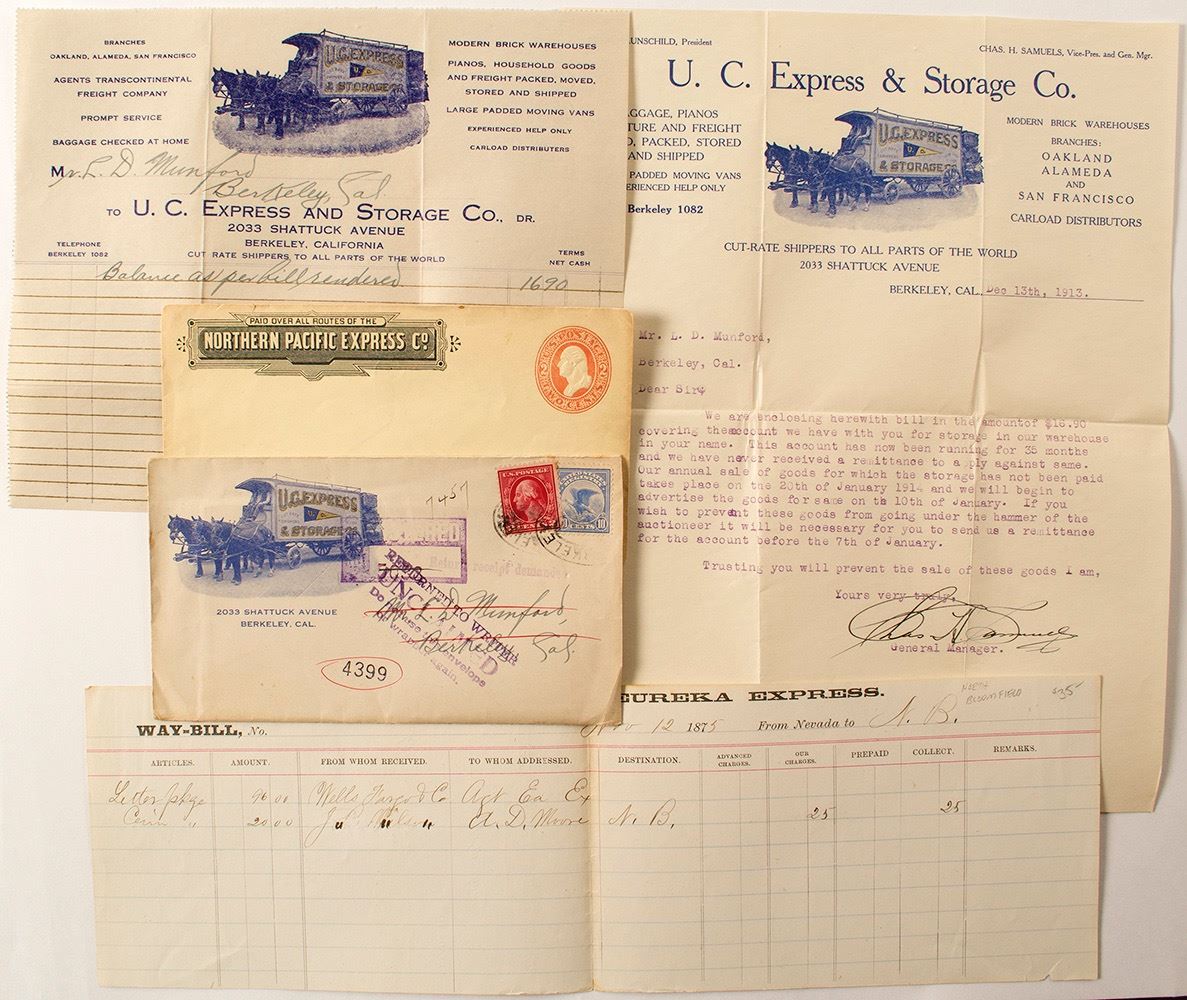 BRANCHES
OAKLAND, ALAMEDA, SAN FRANCISCO
AGENTS TRANSCONTINENTAL
FREIGHT COMPANY
PROMPT SERVICE
BAGGAGE CHECKED AT HOME
U.C. EXPRESS
& STORAGE CO.
MODERN BRICK WAREHOUSES
PIANOS, HOUSEHOLD GOODS
AND FREIGHT PACKED, MOVED,
STORED AND SHIPPED
LARGE PADDED MOVING VANS
EXPERIENCED HELP ONLY
CARLOAD DISTRIBUTORS
Mr. L. D. Munford
Berkeley, Cal.
TO U. C. EXPRESS AND STORAGE CO., DR.
2033 SHATTUCK AVENUE
BERKELEY, CALIFORNIA
TELEPHONE
BERKELEY 1082
CUT RATE SHIPPERS TO ALL PARTS OF THE WORLD
TERMS
NET CASH
Balance as per bill rendered 1690
UNSCHILD, President
CHAS. H. SAMUELS, Vice-Pres. and Gen. Mgr.
U. C. Express & Storage Co.
GGAGE, PIANOS
TURE AND FREIGHT
D, PACKED, STORED
AND SHIPPED
PADDED MOVING VANS
ERIENCED HELP ONLY
Berkeley 1082
U.C. EXPRESS
U C
& STORAGE CO.
MODERN BRICK WAREHOUSES
BRANCHES:
OAKLAND
ALAMEDA
AND
SAN FRANCISCO
CARLOAD DISTRIBUTORS
CUT-RATE SHIPPERS TO ALL PARTS OF THE WORLD
2033 SHATTUCK AVENUE
BERKELEY, CAL., Dec 13th, 1913.
Mr. L. D. Munford,
Berkeley, Cal.
Dear Sir;
We are enclosing herewith bill in the amountof $16.90
covering theaccount we have with you for storage in our warehouse
in your name. This account has now been running for 35 months
and we have never received a remittance to apply against same.
Our annual sale of goods for which the storage has not been paid
takes place on the 20th of January 1914 and we will begin to
advertise the goods for same on the 10th of January. If you
wish to prevent these goods from going under the hammer of the
auctioneer it will be necessary for you to send us a remittance
for the account before the 7th of January.
Trusting you will prevent the sale of these goods I am,
Yours very truly,
Chas H Samuels
General Manager.
PAID OVER ALL ROUTES OF THE
NORTHERN PACIFIC EXPRESS CO.
U.S. POSTAGE
TWO CENTS
U.C. EXPRESS
& STORAGE CO.
2033 SHATTUCK AVENUE
BERKELEY, CAL.
7457
U.S. POSTAGE
10
CENTS
Return receipt demanded
RETURNED TO WRITER
UNCLAIMED
Do not use this envelope
or wrapper again.
Mr. L. D. Munford,
Berkeley,
Cal.
4399
EUREKA EXPRESS.
NORTH
BLOOMFIELD
$35
WAY-BILL, No.
Nov 12 1875 From Nevada to N. B.
ARTICLES. AMOUNT. FROM WHOM RECEIVED. TO WHOM ADDRESSED. DESTINATION. ADVANCED CHARGES. OUR CHARGES. PREPAID COLLECT. REMARKS.
Letter pkge 96 00 Wells Fargo & Co Agt Eu Ex
Coin " 20 00 Wilson A. D. Moore N. B. 25 25